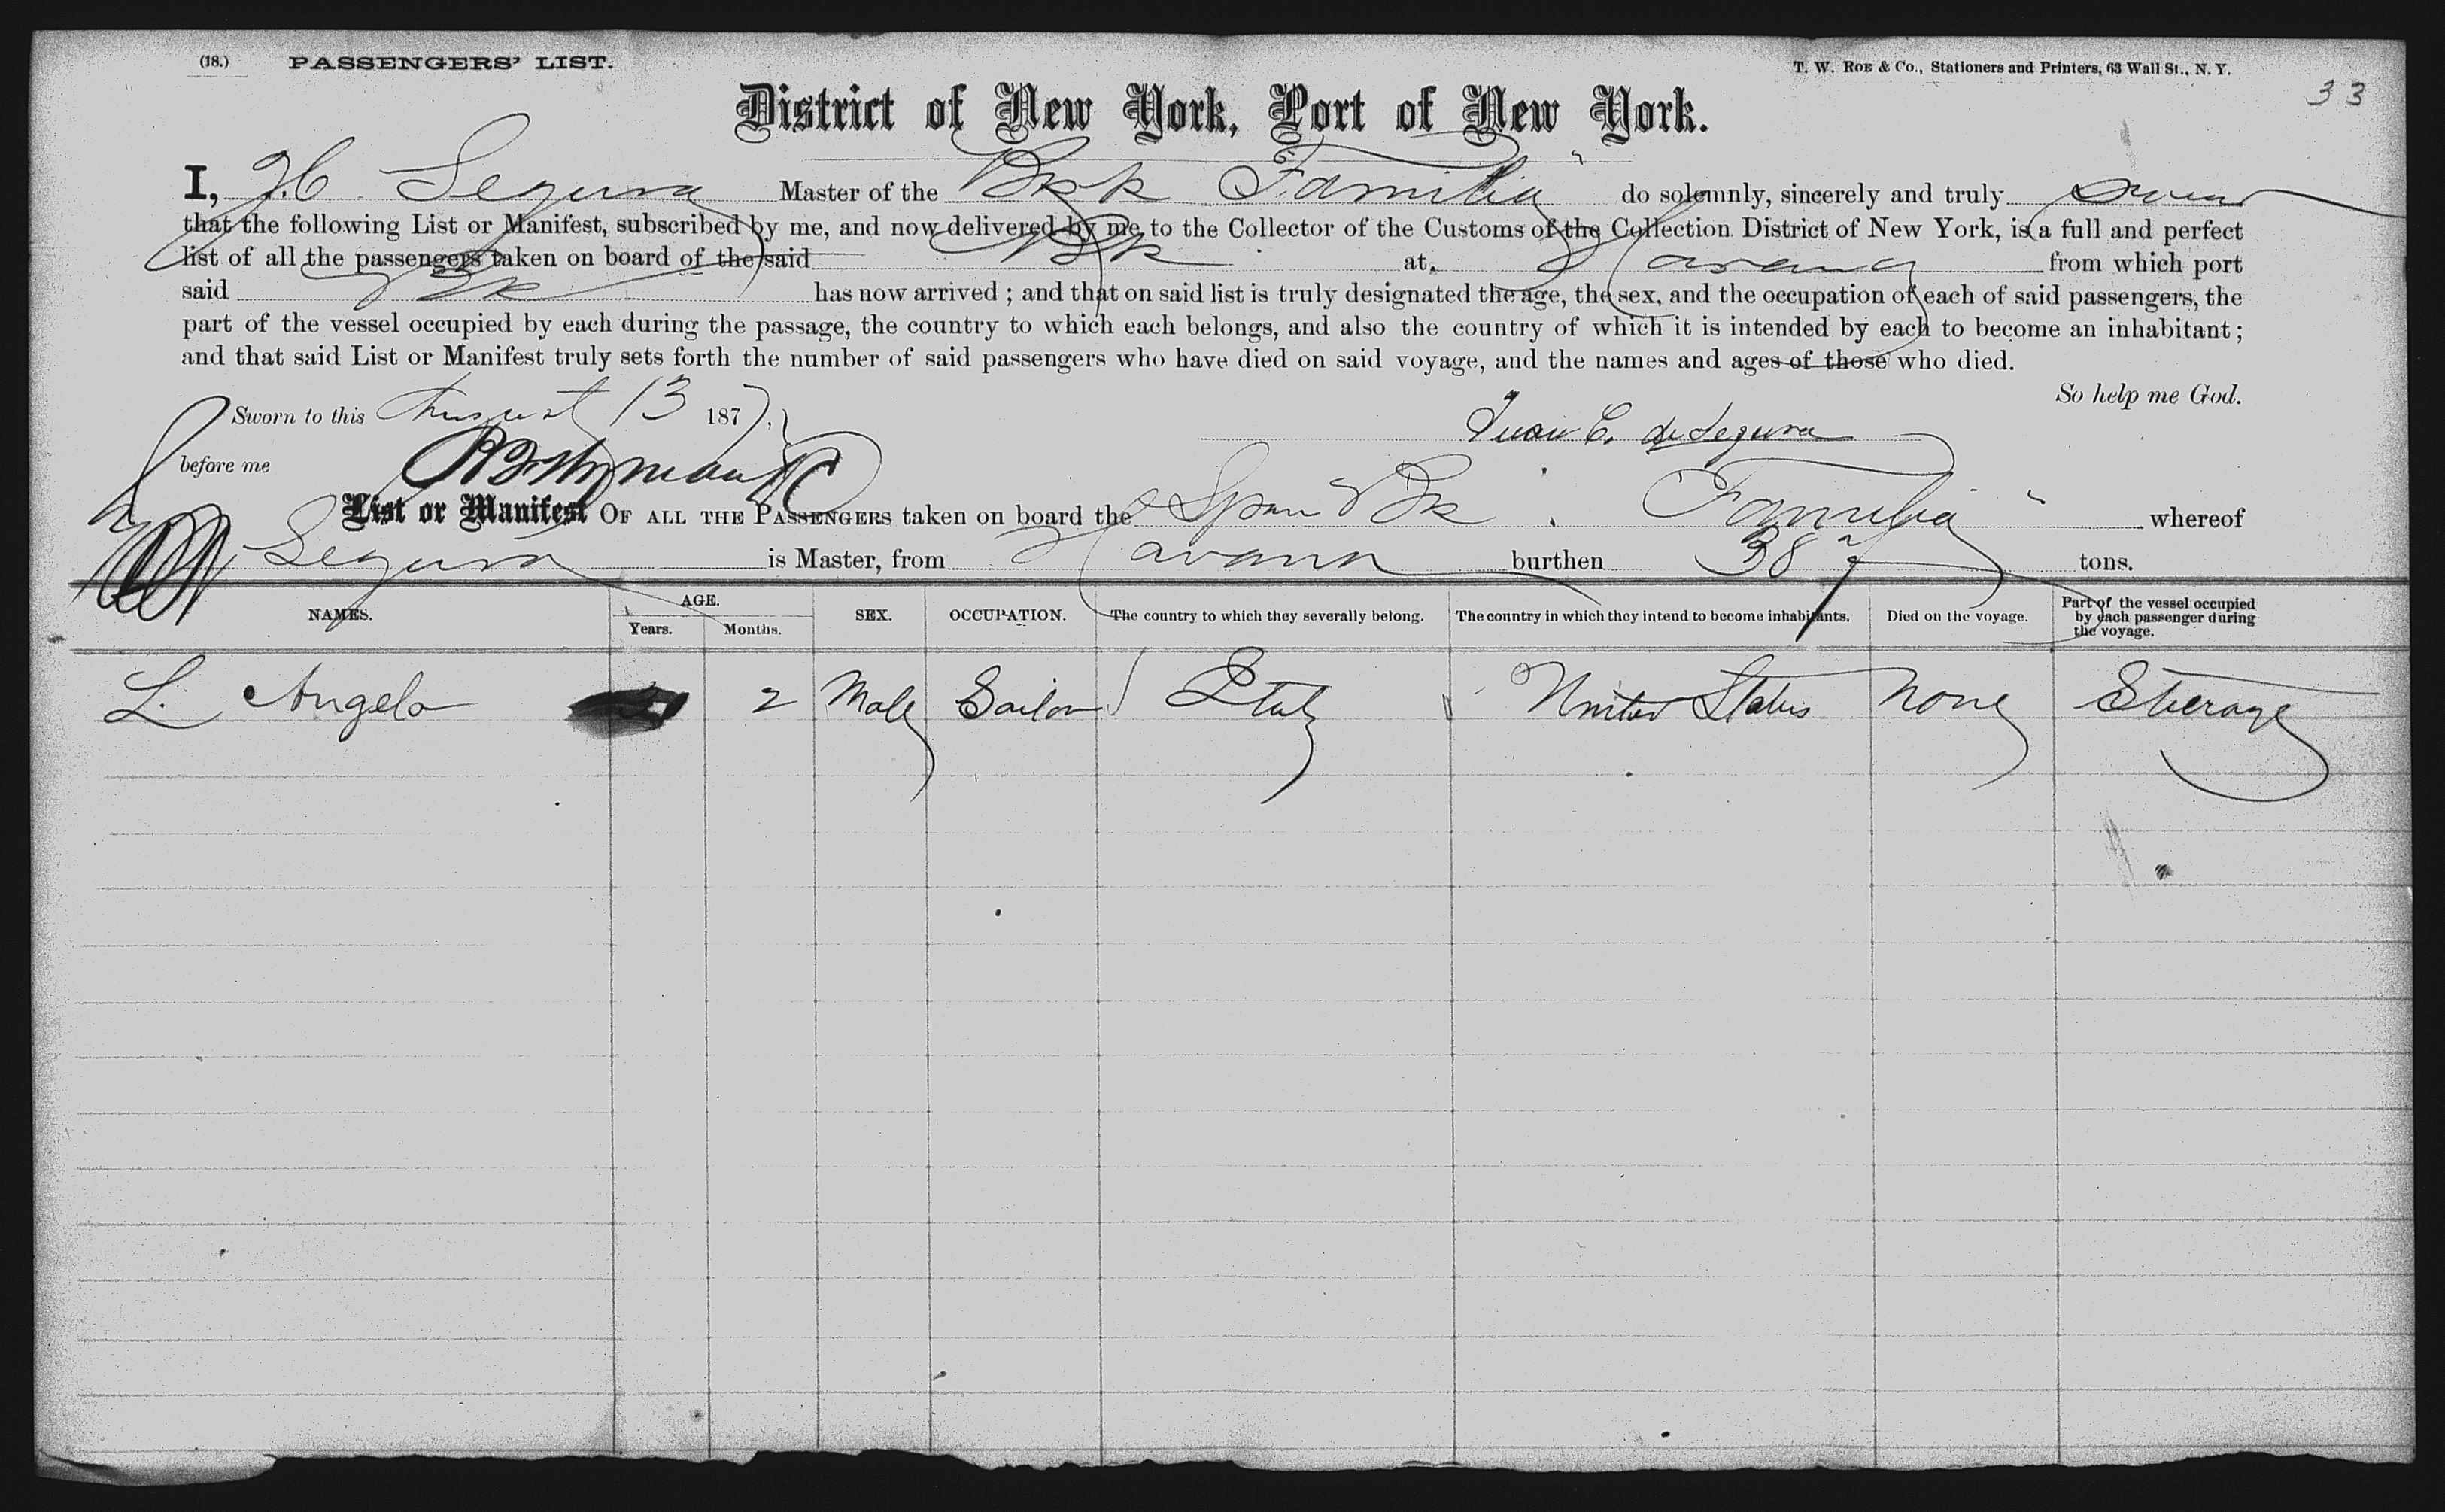 (18.) PASSENGERS' LIST.
T. W. Roe & Co., Stationers and Printers, 63 Wall St., N. Y.
33
District of New York, Port of New York.
I, J.C. Segura Master of the Bark "Familia" do solemnly, sincerely and truly swear
that the following List or Manifest, subscribed by me, and now delivered by me to the Collector of the Customs of the Collection District of New York, is a full and perfect
list of all the passengers taken on board of the said Bk at Havana from which port
said Bk has now arrived ; and that on said list is truly designated the age, the sex, and the occupation of each of said passengers, the
part of the vessel occupied by each during the passage, the country to which each belongs, and also the country of which it is intended by each to become an inhabitant ;
and that said List or Manifest truly sets forth the number of said passengers who have died on said voyage, and the names and ages of those who died.
So help me God.
Sworn to this August 13 1877,
Juan C. de Segura
before me
List or Manifest OF ALL THE PASSENGERS taken on board the Span Bk "Familia" whereof
Segura is Master, from Havana burthen 387 tons.
NAMES. AGE. Years. Months. SEX. OCCUPATION. The country to which they severally belong. The country in which they intend to become inhabitants. Died on the voyage. Part of the vessel occupied by each passenger during the voyage.
L. Angelo 2 Male Sailor Italy United States None Steerage